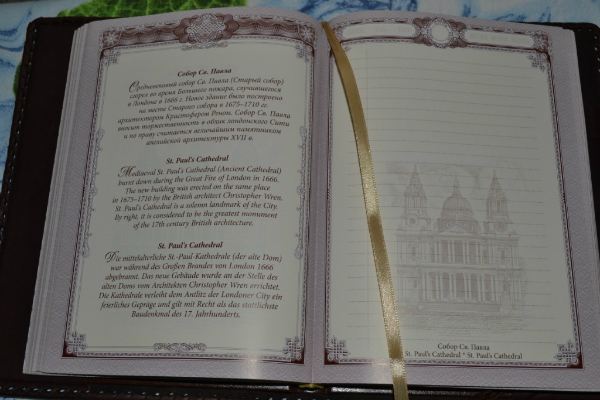 Собор Св. Павла
Средневековый собор Св. Павла (Старый собор)
сгорел во время Великого пожара, случившегося
в Лондоне в 1666 г. Новое здание было построено
на месте Старого собора в 1675–1710 гг.
архитектором Кристофером Реном. Собор Св. Павла
вносит торжественность в облик лондонского Сити
и по праву считается величайшим памятником
английской архитектуры XVII в.
St. Paul's Cathedral
Mediaeval St. Paul's Cathedral (Ancient Cathedral)
burnt down during the Great Fire of London in 1666.
The new building was erected on the same place
in 1675–1710 by the British architect Christopher Wren.
St. Paul's Cathedral is a solemn landmark of the City.
By right, it is considered to be the greatest monument
of the 17th century British architecture.
St. Paul's Cathedral
Die mittelalterliche St.-Paul-Kathedrale (der alte Dom)
war während des Großen Brandes von London 1666
abgebrannt. Das neue Gebäude wurde an der Stelle des
alten Doms vom Architekten Christopher Wren errichtet.
Die Kathedrale verleiht dem Antlitz der Londoner City ein
feierliches Gepräge und gilt mit Recht als das stattlichste
Baudenkmal des 17. Jahrhunderts.
Собор Св. Павла
St. Paul's Cathedral * St. Paul's Cathedral